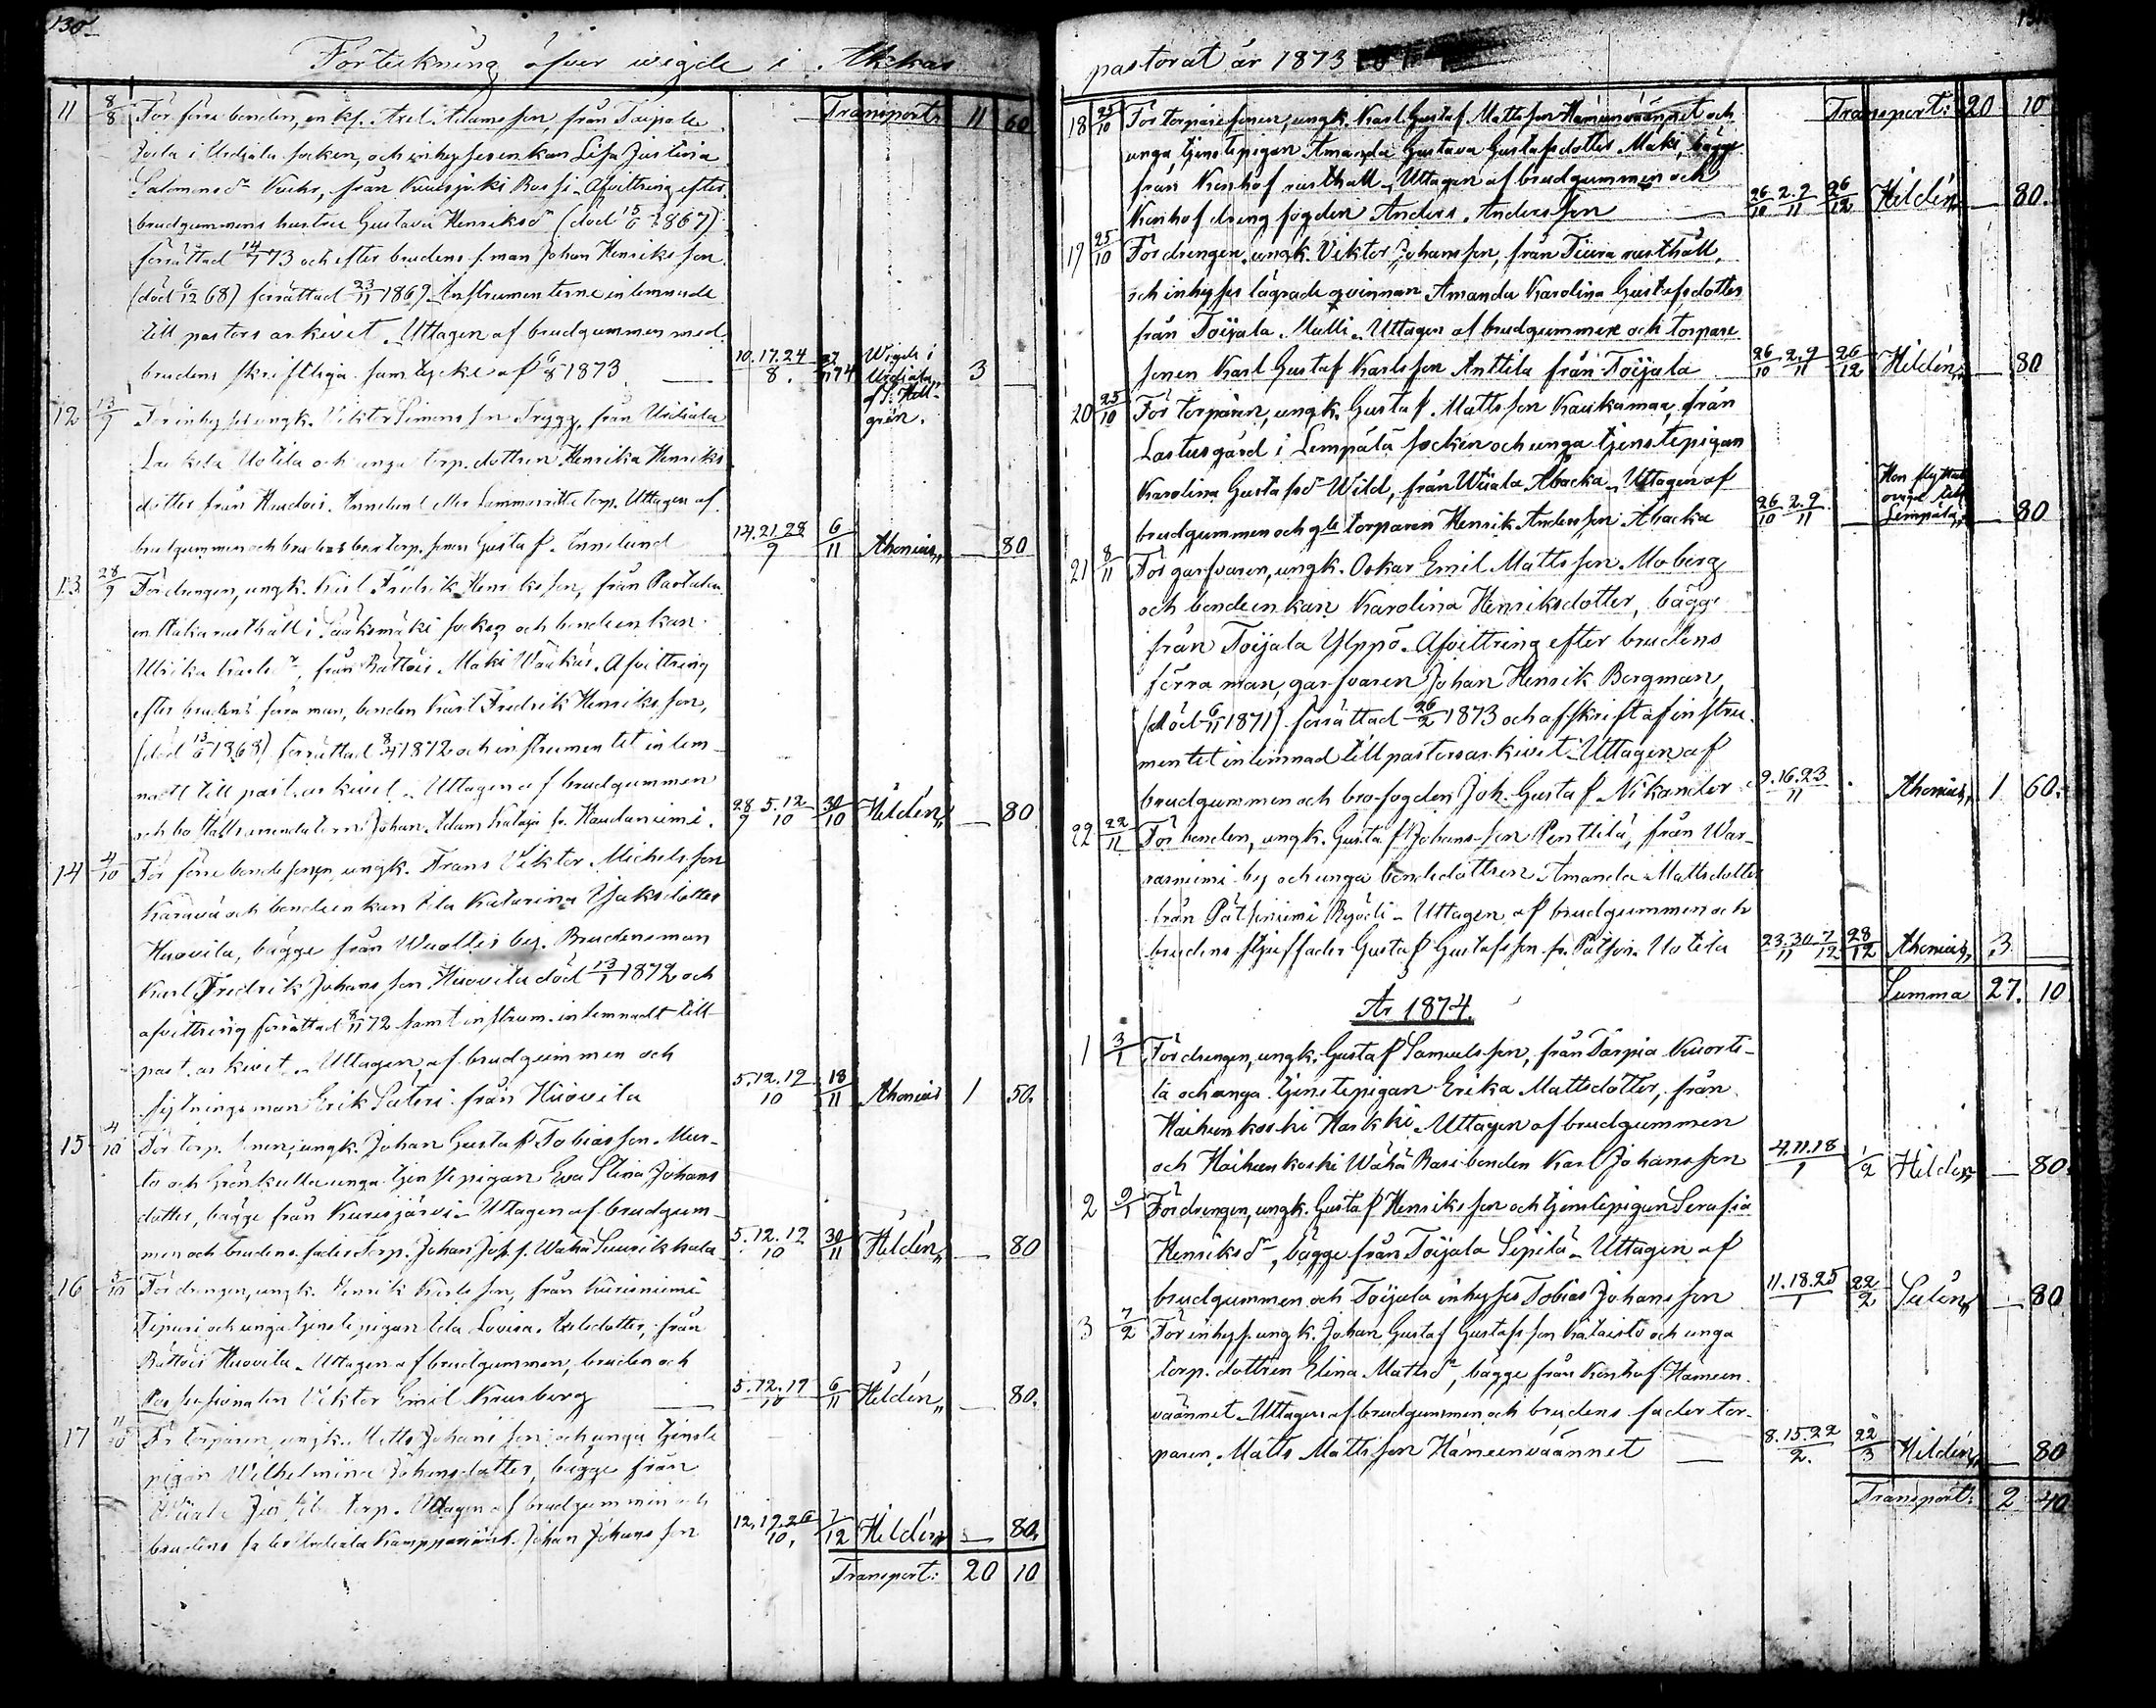 130
Förteckning öfver wigde i Akkas
Transport: 11 60
11 8/8 För förre bonden, enkl. Axel Adamsson, från Taipale
Jocla i Urdiala socken, och inhyses enkan Lisa Justina
Salomonsdr Kuhr, från Kurisjärvi Rossi. Afvittring efter
brudgummens hustru Gustava Henriksdr (död 15/6 1867)
förrättad 14/7 73 och efter brudens f. man Johan Henriksson
(död 6/12 68) förrättad 23/11 1869. Instrumenterne inlemnade
till pastors arkivet. Uttagen af brudgummen med
brudens skriftliga samtycke af 6/8 1873 10.17.24/8. Wigde i Urdiala af Hellgrén. 3 —
12 13/9 För inhyses ungk. Viktor Simonsson Trygg, från Urdiala
Laukela Uotila och unga torp. dottren Henrika Henriks
dotter från torp. Uttagen af
brudgummen och brudens bror torp. sonen Gustaf Ennelund 14.21.28/9 6/11 Ahonius — 80
13 28/9 För drengen, ungk. Karl Fredrik Henriksson, från
rusthåll i Sääksmäki socken och bondeenkan
Ulrika Karlsdr, från Rättöis Mäki Wäukäs. Afvittring
efter brudens förra man, bonden Karl Fredrik Henriksson,
(död 13/6 1868) förrättad 8/4 1872 och instrumentet inlem-
nadt till past. arkivet. Uttagen af brudgummen
och Johan Adam 28/9 5.12/10 30/10 Hildén — 80
14 4/10 För förre bondesonen, ungk. Frans Viktor Michelsson
Karava och bondeenkan Ida Katarina Isaksdotter
Huovila, bägge från Wuolles by. Brudens man
Karl Fredrik Johansson Huovila död 13/1 1872 och
afvittring förrättad 8/11 72 samt instrum. inlemnadt till
past. arkivet. Uttagen af brudgummen och
sytningsman Erik Sateri från Huovila 5.12.19/10 18/11 Ahonius 1 50.
15 4/10 För torp. sonen, ungk. Johan Gustaf Tobiasson Mus-
ta och unga tjenstepigan Eva Stina Johans
dotter, bägge från Kurisjärvi. Uttagen af brudgum-
men och brudens fader Torp. Johan Wähä 5.12.19/10 30/11 Hildén — 80
16 5/10 För drengen, ungk. Henrik Karlsson, från Kurisniemi
Tipuri och unga tjenstepigan Ida Lovisa Axelsdotter, från
Rättöis Huovila. Uttagen af brudgummen, bruden och
Possessionaten Viktor Emil Krusberg 5.12.19/10 6/11 Hildén — 80.
17 11/10 För torparen, ungk. Matts Johansson och unga tjenste
pigan Wilhelmina Johansdotter, bägge från
Wiiala torp. Uttagen af brudgummen och
brudens fader Urdiala Johan Johansson 12.19.26/10. 7/12 Hildén — 80.
Transport: 20 10
pastorat år 1873
Transport: 20 10
18 25/10 För torparesonen, ungk. Karl Gustaf Mattsson Hämeenväännet och
unga tjenstepigan Amanda Gustava Gustafsdotter Mäki, bägge
från Konhof rusthåll. Uttagen af brudgummen och
Konhof drengfogden Anders Andersson 26/10 2.9/11 26/12 Hildén — 80.
19 25/10 För drengen, ungk. Viktor Johansson, från Tiura rusthåll,
och inhyses lägrade qvinnan Amanda Karolina Gustafsdotter
från Toijala Mulli. Uttagen af brudgummen och torpare
sonen Karl Gustaf Karlsson Anttila från Toijala 26/10 2.9/11 26/12 Hildén — 80
20 25/10 För torparen, ungk. Gustaf Mattsson Kaukamaa, från
Lastusgård i Lempälä socken och unga tjenstepigan
Karolina Gustafsdr Wild, från Wiiala Åbacka. Uttagen af
brudgummen och gle torparen Henrik Andersson Åbacka 26/10 2.9/11 — Hon flyttade ovigd till Lempälä — 80
21 8/11 För garfvaren, ungk. Oskar Emil Mattsson Moberg
och bondeenkan Karolina Henriksdotter, bägge
från Toijala Ylppö. Afvittring efter brudens
förra man, garfvaren Johan Henrik Bergman,
(död 6/11 1871) förrättad 26/2 1873 och afskrift af instru-
mentet inlemnad till pastorsarkivet. Uttagen af
brudgummen och brofogden Joh. Gustaf Nikander 9.16.23/11 Ahonius 1 60.
22 22/11 För bonden, ungk. Gustaf Johansson Penttilä, från War-
rasniemi by och unga bondedottren Amanda Mattsdotter
från Pätsiniemi Ryödi. Uttagen af brudgummen och
brudens stjuffader Gustaf Gustafsson fr. Pätsin. Uotila 23.30/11 7/12 28/12 Ahonius 3 —
Summa 27. 10
År 1874.
1 3/1 För drengen, ungk. Gustaf Samuelsson, från Tarpia Kuorti-
la och unga tjenstepigan Erika Mattsdotter, från
Haihunkoski Harkki. Uttagen af brudgummen
och Haihunkoski Wähä Rasi bonden Karl Johansson 4.11.18/1 1/2 Hildén — 80.
2 9/1 För drengen, ungk. Gustaf Henriksson och tjenstepigan Serafia
Henriksdr, bägge från Toijala Sepilä. Uttagen af
brudgummen och Toijala inhyses Tobias Johansson 11.18.25/1 22/2 Salén — 80
3 7/2 För inhyses ungk. Johan Gustaf Gustafsson Kataisto och unga
torp. dottren Elina Mattsdr, bägge från Konhof Hämeen-
väännet. Uttagen af brudgummen och brudens fader tor-
paren Matts Mattsson Hämeenväännet 8.15.22/2. 22/3 Hildén — 80
Transport: 2 40